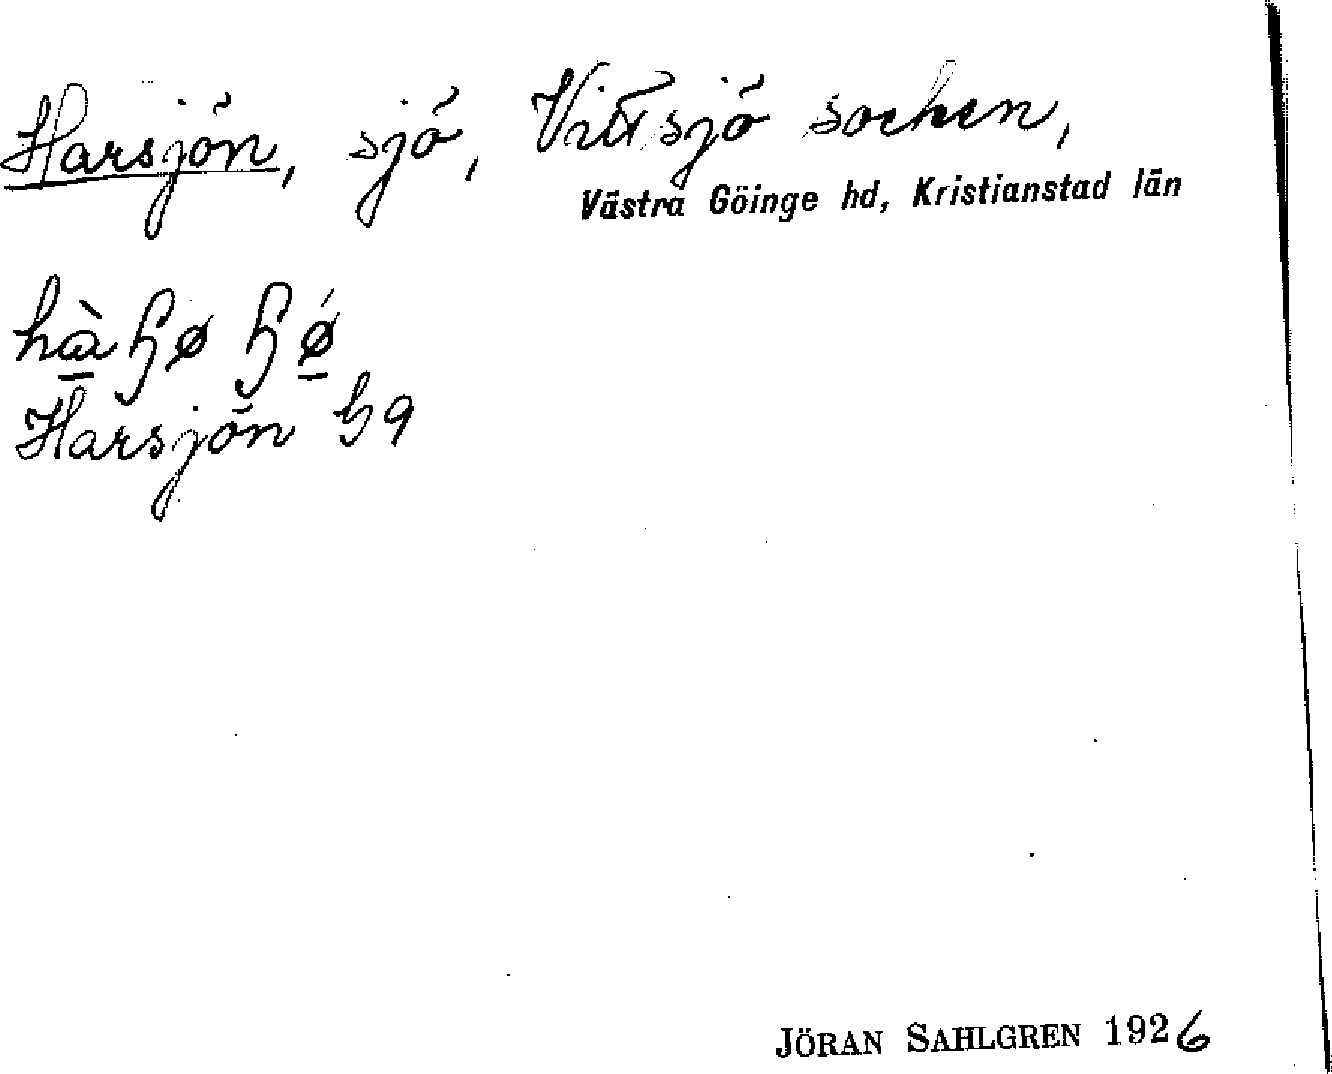 Harsjön, sjö, Vittsjö socken,
Västra Göinge hd, Kristianstad län
Harsjön
JÖRAN SAHLGREN 1926